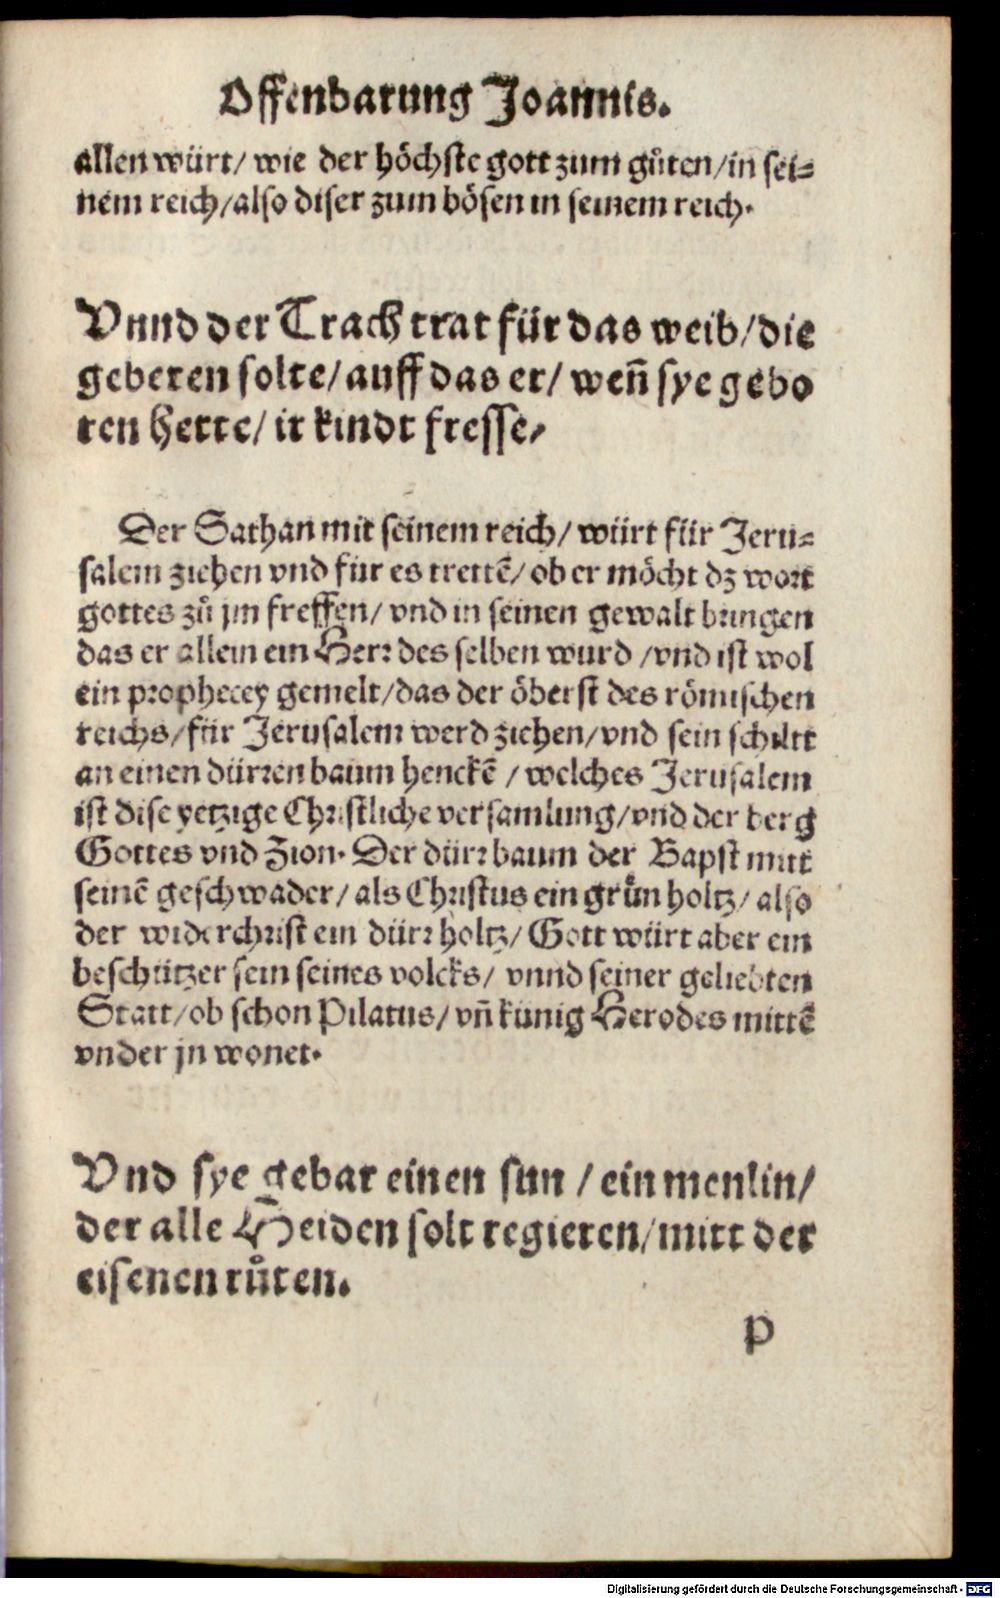 Offenbarung Joannis.
allen würt/ wie der höchste gott zum gůten/in sei-
nem reich/also diser zum bösen in seinem reich.
Vnnd der Trach trat für das weib/die
geberen solte/auff das er/ weñ sye gebo
ren hette/ ir kindt fresse,
Der Sathan mit seinem reich/ würt für Jeru-
salem ziehen vnd für es trettẽ/ob er möcht dz wort
gottes zů jm freffen/ vnd in seinen gewalt bringen
das er allein ein Herr des selben wurd /vnd ist wol
ein prophecey gemelt/das der öberst des römischen
reichs/für Jerusalem werd ziehen/vnd sein schiltt
an einen dürren baum henckẽ /welches Jerusalem
ist dise yetzige Christliche versamlung/vnd der berg
Gottes vnd Zion. Der dürr baum der Bapst mitt
seinẽ geschwader/als Christus ein grůn holtz/also
der widerchrist ein dürr holtz/Gott würt aber ein
beschützer sein seines volcks/ vnnd seiner geliebten
Statt/ob schon Pilatus/vñ künig Herodes mittẽ
vnder jn wonet.
Vnd sye gebar einen sun /ein menlin/
der alle Heiden solt regieren/mitt der
eisenen růten.
P
Digitalisierung gefördert durch die Deutsche Forschungsgemeinschaft - DFG